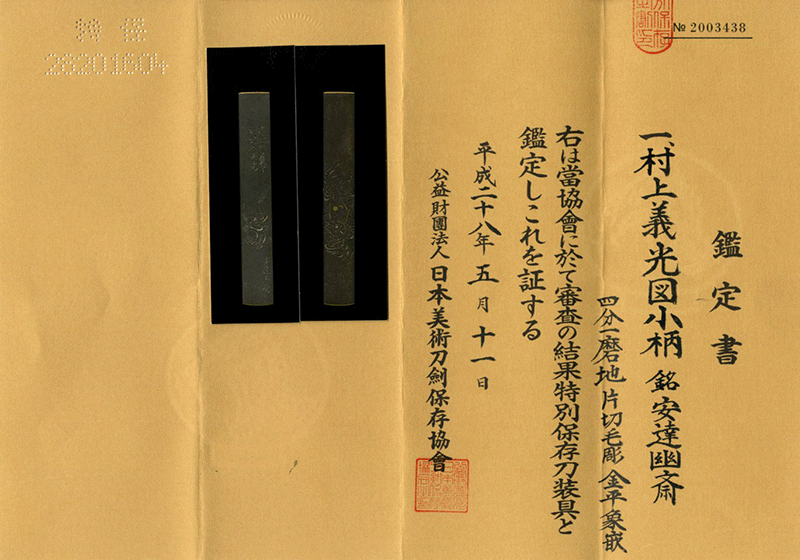 № 2003438
鑑定書
一、村上義光図小柄 銘 安達幽斎
四分一磨地 片切毛彫 金平象嵌
右は當協會に於て審査の結果特別保存刀装具と
鑑定しこれを証する
平成二十八年五月十一日
公益財團法人日本美術刀劍保存協會
26201604